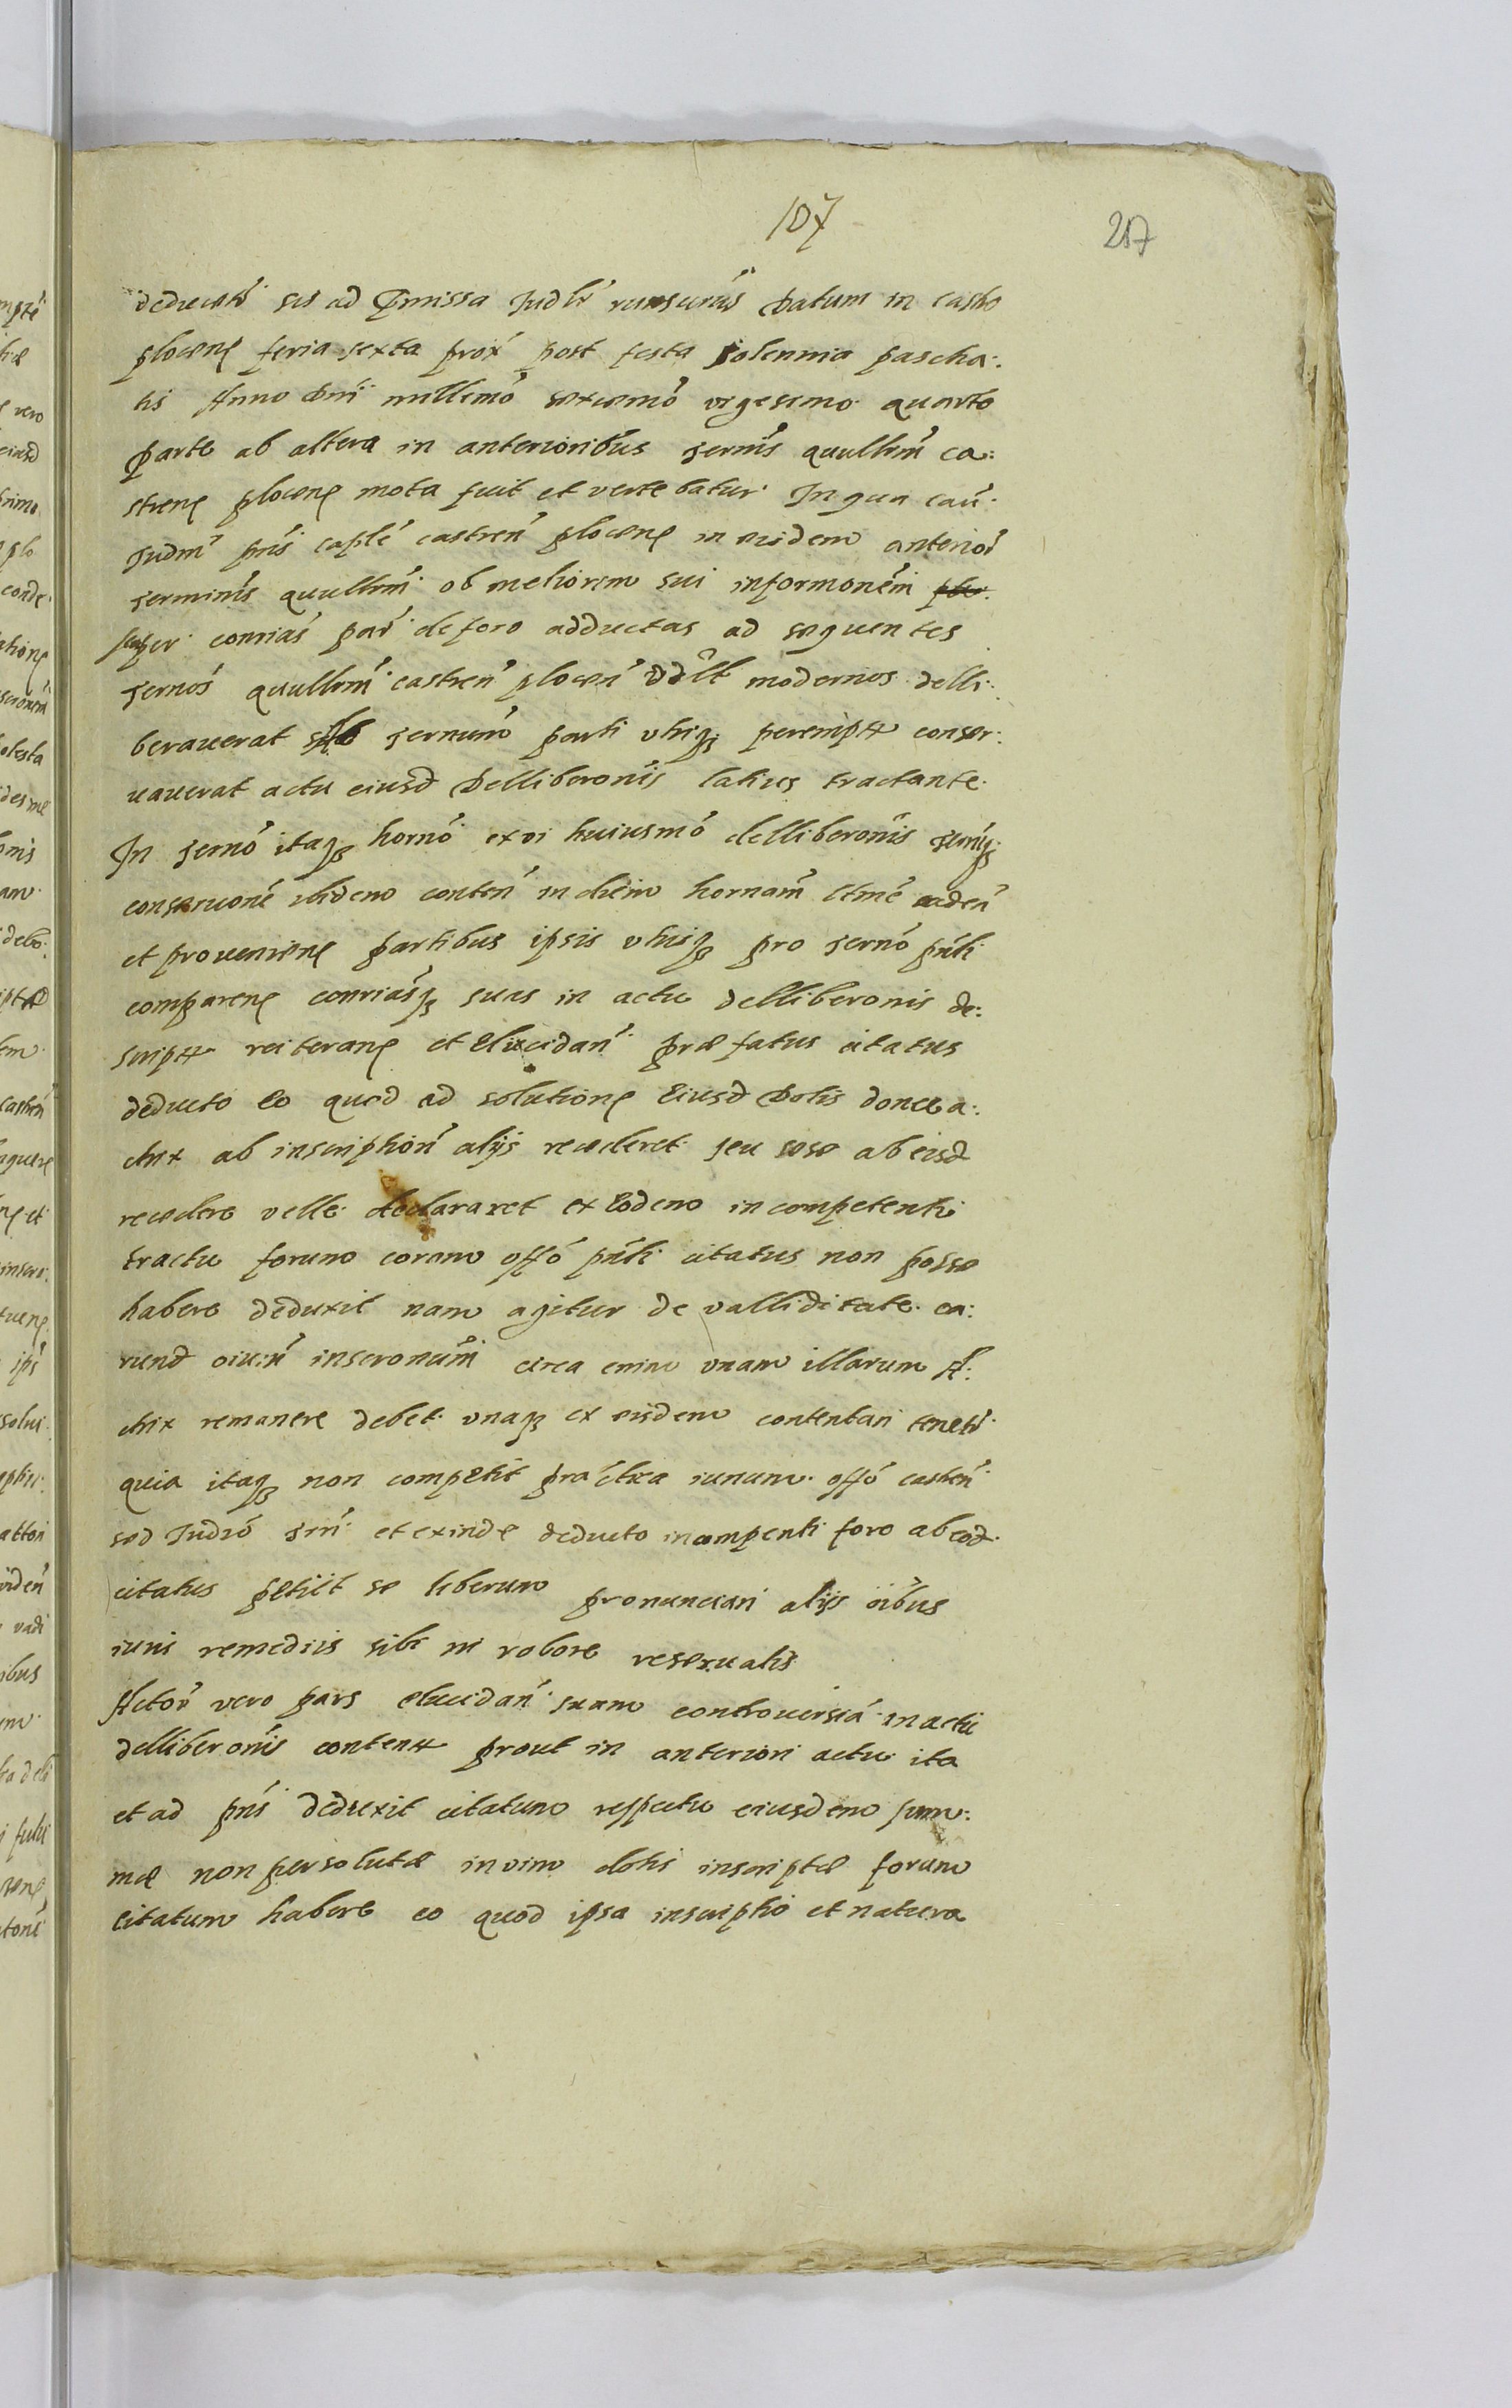 107
217
sis ad Pmissa Judlr rūnsurus Datum in castro
plocen feria sexta prox post festa solennia pascha:
tis Anno dni millemo sexcemo vigesimo quarto
parte ab altera in anterioribus termis quullrm ca:
stren plocen mota fuit et vertebatur In qua cau
Judm pns caple castren plocen in eisdem anterior
terminis quullrm ob meliorem sui informonem
super conrias par de foro adductas ad sequentes
ternos quullrm castren plocen modernos delli:
berauerat ternum parti vtriq perempt conser:
uauerat actu eiusd Delliberonis latius tractante
In terno itaq horno ex vi huiusmo delliberonis terniq
conseruone ibidem conten in diem hornam ltme caden
et prouenien partibus ipsis vtrisq pro terno pnti
comparen conriasq suas in actu delliberonis de:
script reiteran et Elucidan præfatus citatus
deducto Eo quod ad solutione Eiusd Dotis donec a:
ctrix ab inscription alijs recederet seu sese ab eisd
recedere velle declararet ex Eodem incompetenti
tractu forum coram offo pnti citatus non posse
habere deduxit nam agitur de valliditate ea:
rund oium inscronum circa enim vnam illarum A:
ctrix remanere debet vnaq ex eisdem contentari tenetr
quia itaq non competit practica iurium offo castren
sed Judzo trri et exinde deducto incompenti foro ab eod
citatus petiit se liberum pronunciari alijs oibus
iuris remediis sibi in robore reseruatis
Actor vero pars elucidan suam controuersia in actu
delliberonis content prout in anteriori actu ita
et ad pns deduxit citatum respectu eiusdem sum:
mæ non persolutæ in vim dotis inscriptæ forum
citatum habere eo quod ipsa inscriptio et natura